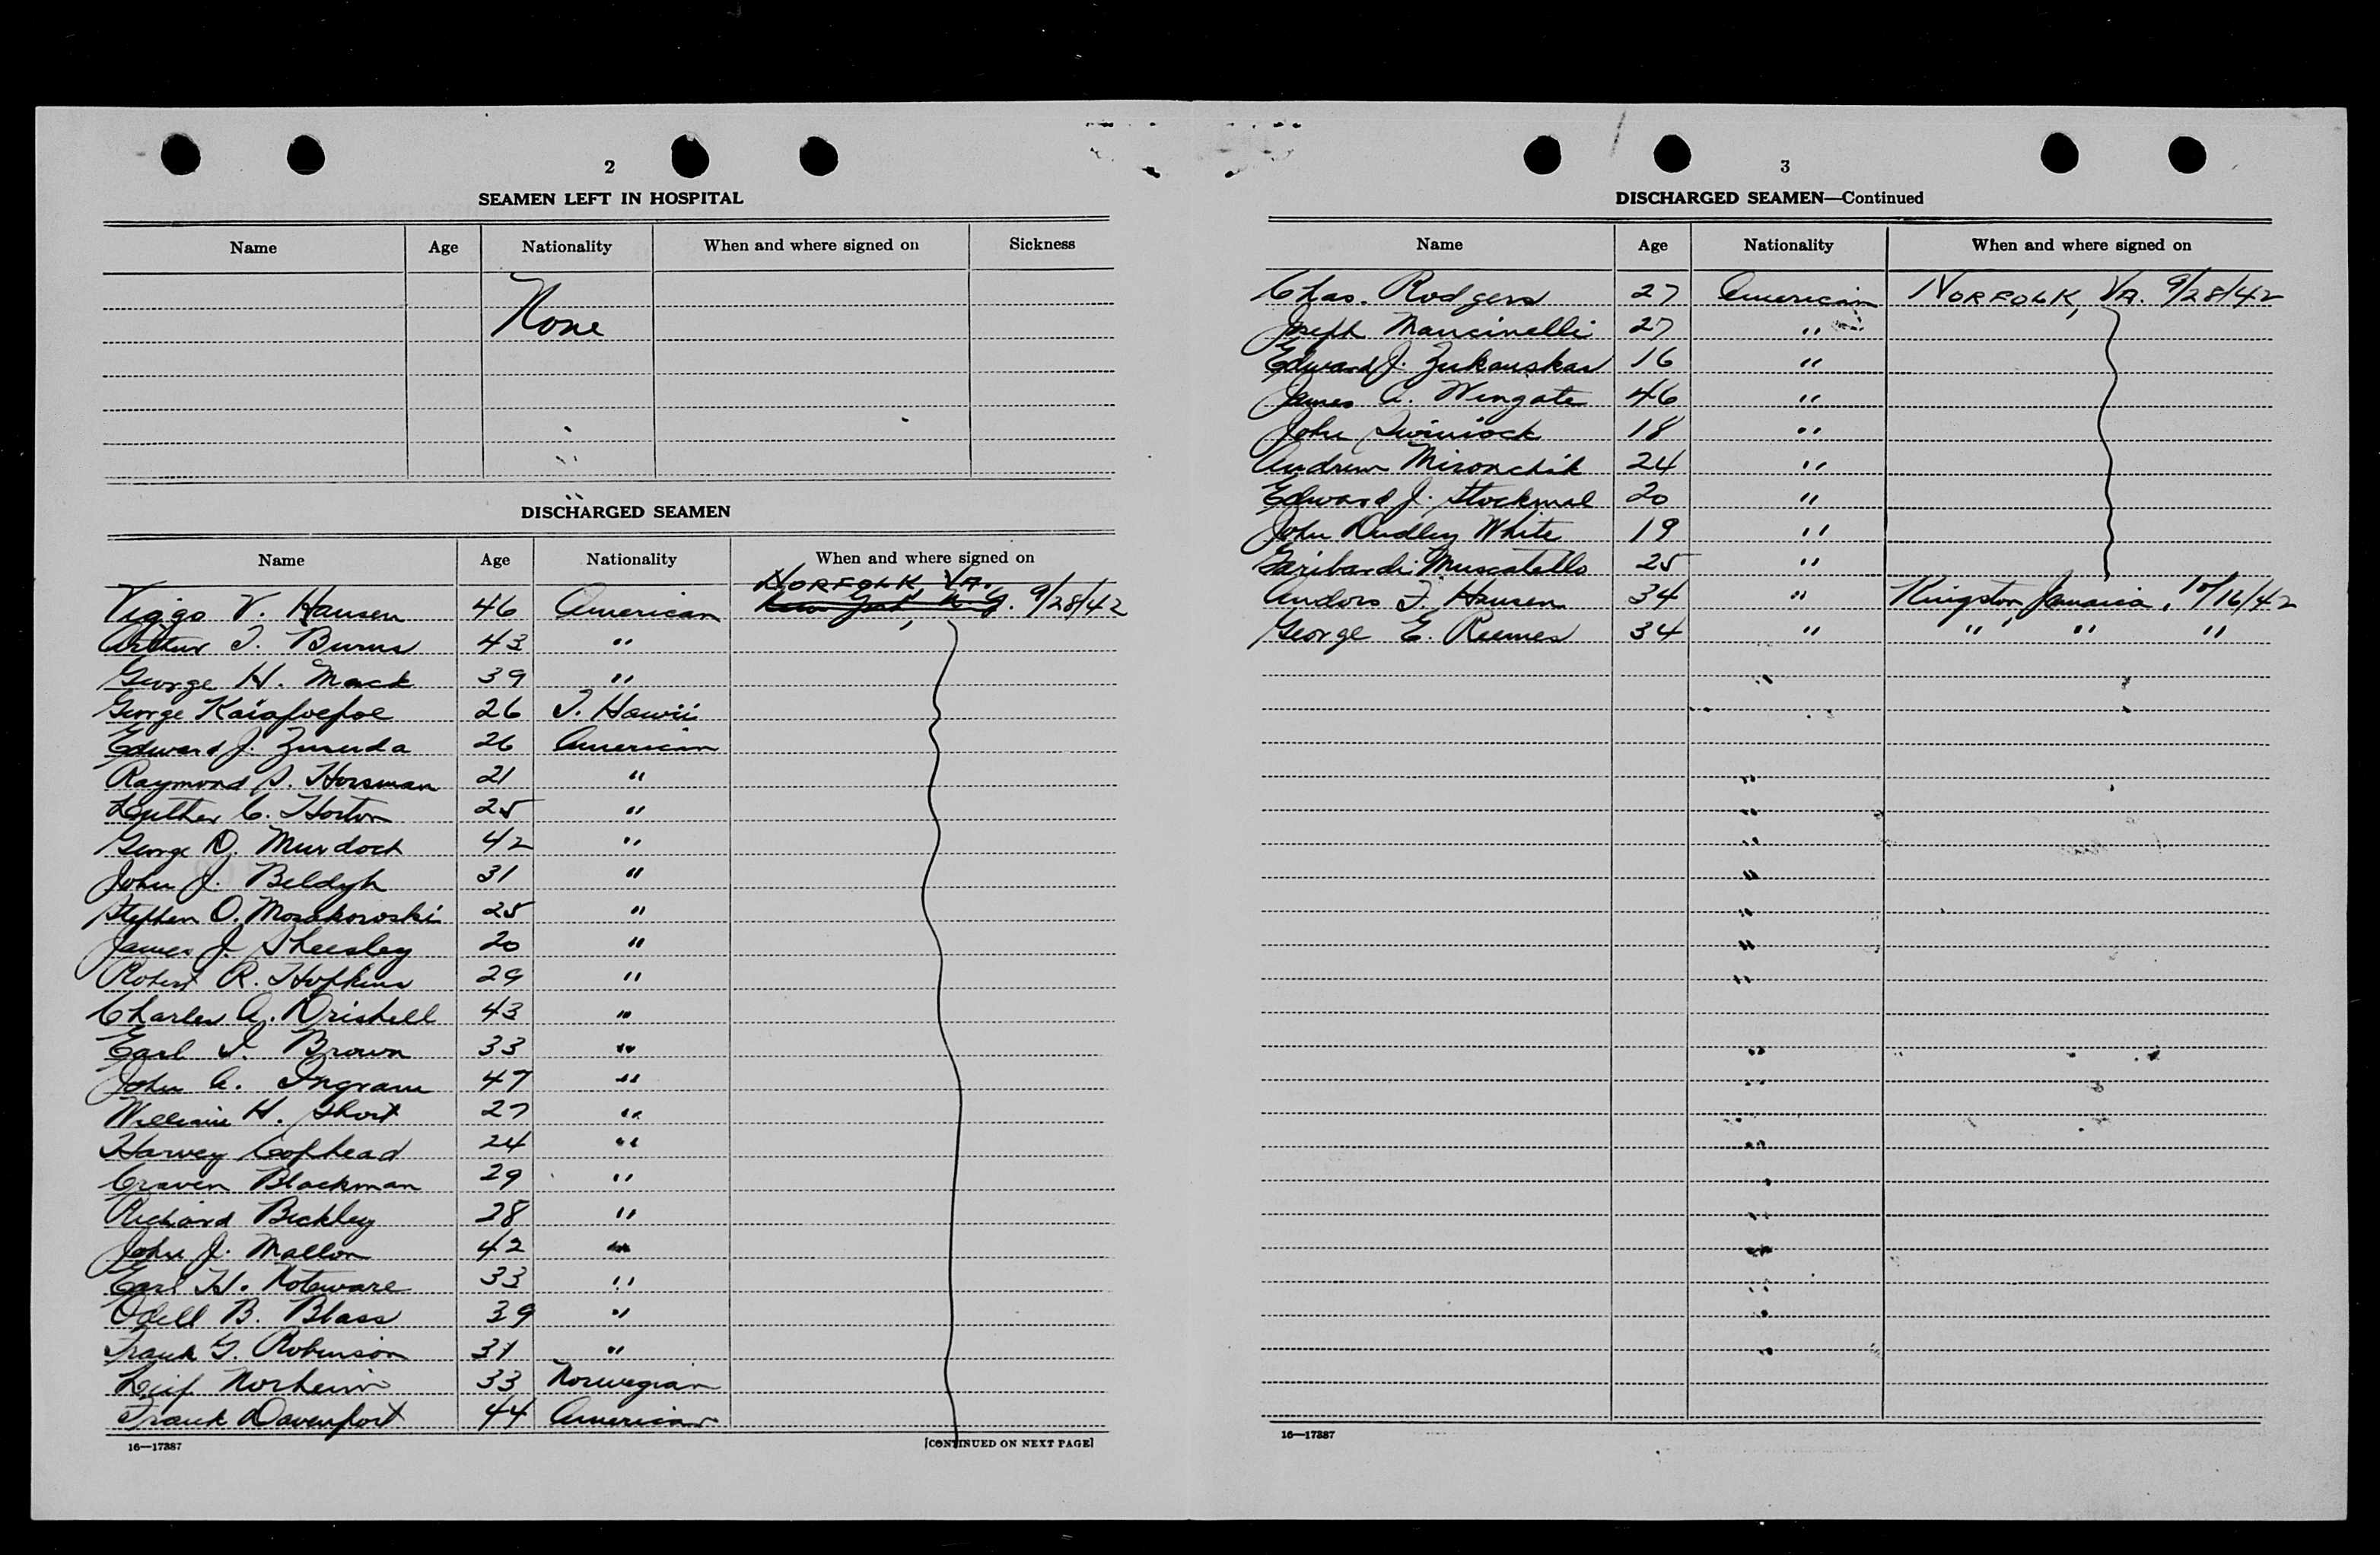 2
SEAMEN LEFT IN HOSPITAL
Name Age Nationality When and where signed on Sickness
None
DISCHARGED SEAMEN
Name Age Nationality When and where signed on
NORFOLK, VA.
Viggo V. Hansen 46 American New York, N.Y. 9/28/42
Arthur T. Burns 43 "
George H. Mack 39 "
George Kaiapoepoe 26 T. Hawii
Edward J. Zmuda 26 American
Raymond S. Horsman 21 "
Luther C. Horton 25 "
George D. Murdoch 42 "
John J. Beldyk 31 "
Stephen O. Mozakowski 25 "
James J. Sheesley 20 "
Robert R. Hopkins 29 "
Charles A. Driskell 43 "
Earl I. Brown 33 "
John A. Ingram 47 "
William H. Short 27 "
Harvey Cophead 24 "
Craven Blackman 29 "
Richard Beckley 28 "
John J. Mallon 42 "
Earl H. Noteware 33 "
Odell B. Blass 39 "
Frank G. Robinson 31 "
Leif Norheim 33 Norwegian
Frank Davenport 44 American
16—17387 [CONTINUED ON NEXT PAGE]
3
DISCHARGED SEAMEN—Continued
Name Age Nationality When and where signed on
Chas. Rodgers 27 American NORFOLK, VA. 9/28/42
Joseph Mancinelli 27 "
Edward J. Zukauskas 16 "
James A. Wingate 46 "
John Swiniock 18 "
Andrew Mironchik 24 "
Edward J. Stockmal 20 "
John Dudley White 19 "
Garibardi Muscatello 25 "
Andors F. Hansen 34 " Kingston Jamaica, 10/16/42
George E. Reemes 34 " " " "
16—17387